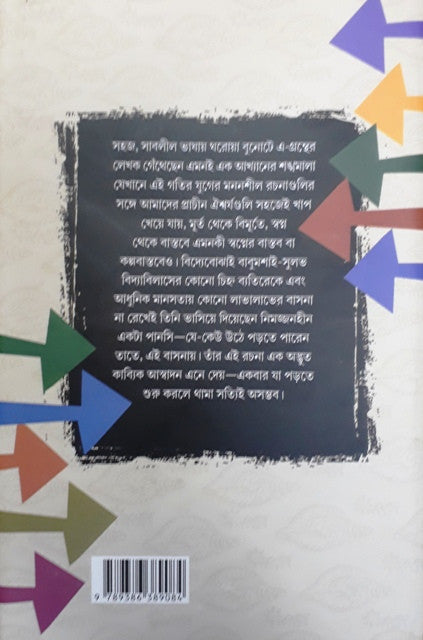 সহজ, সাবলীল ভাষায় ঘরোয়া বুনোটে এ-গ্রন্থের
লেখক গেঁথেছেন এমনই এক আখ্যানের শব্দমালা
যেখানে এই গতির যুগের মননশীল রচনাগুলির
সঙ্গে আমাদের প্রাচীন ঐশ্বর্যগুলি সহজেই খাপ
খেয়ে যায়, মূর্ত থেকে বিমূর্তে, স্বপ্ন
থেকে বাস্তবে এমনকী স্বপ্নের বাস্তব বা
কল্পবাস্তবেও। বিদ্যেবোঝাই বাবুমশাই-সুলভ
বিদ্যাবিলাসের কোনো চিহ্ন ব্যতিরেকে এবং
আধুনিক মানসতায় কোনো লাভালাভের বাসনা
না রেখেই তিনি ভাসিয়ে দিয়েছেন নিমজ্জনহীন
একটা পানসি—যে-কেউ উঠে পড়তে পারেন
তাতে, এই বাসনায়। তাঁর এই রচনা এক অদ্ভুত
কাব্যিক আস্বাদন এনে দেয়—একবার যা পড়তে
শুরু করলে থামা সত্যিই অসম্ভব।
9 789386 389084